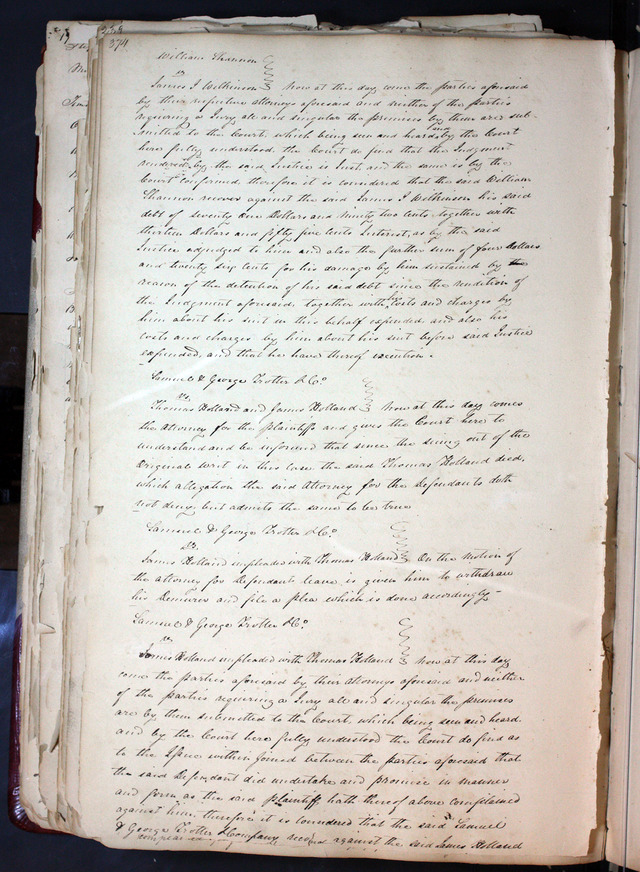 374
William Shannon
vs
James J Wilkinson Now at this day come the parties aforesaid
by their respective attorneys aforesaid and neither of the parties
requiring a Jury all and singular the premises by them are sub-
mitted to the Court, which being seen and heard and by the Court
here fully understood. the Court do find that the Judgment
rendered by the said Justice is Just, and the same is by the
Court confirmed, therefore it is considered that the said William
Shannon recover against the said James J Wilkinson his said
debt of seventy one Dollars and ninety two cents together with
thirteen Dollars and fifty five cents Interest, as by the said
Justice adjudged to him and also the further sum of four Dollars
and twenty six cents for his damage by him sustained by
reason of the detention of his said debt since the rendition of
the Judgment aforesaid, together with Costs and charges by
him about his suit in this behalf expended and also his
costs and charges by him about his suit before said Justice
expended, and that he have thereof execution.
Samuel & George Trotter & Co
vs.
Thomas Holland and James Holland Now at this day comes
the Attorney for the plaintiffs and gives the Court here to
understand and be informed that since the suing out of the
Original writ in this case the said Thomas Holland died,
which allegation the said Attorney for the Defendants doth
not deny but admits the same to be true
Samuel & George Trotter & Co.
vs.
James Holland impleaded with Thomas Holland On the motion of
the attorney for Defendants leave is given him to withdraw
his Demurer and file a plea which is done accordingly-
Samuel & George Trotter & Co
vs
James Holland impleaded with Thomas Holland Now at this day
come the parties aforesaid by their Attorneys aforesaid and neither
of the parties requiring a Jury all and singular the premises
are by them submitted to the Court, which being seen and heard
and by the Court here fully understood the Court do find as
to the Issue within joined between the parties aforesaid that
the said Defendant did undertake and promise in manner
and form as the said plaintiff hath thereof above complained
against him, therefore it is considered that the said Samuel
& George Trotter & Company recover against the said James Holland